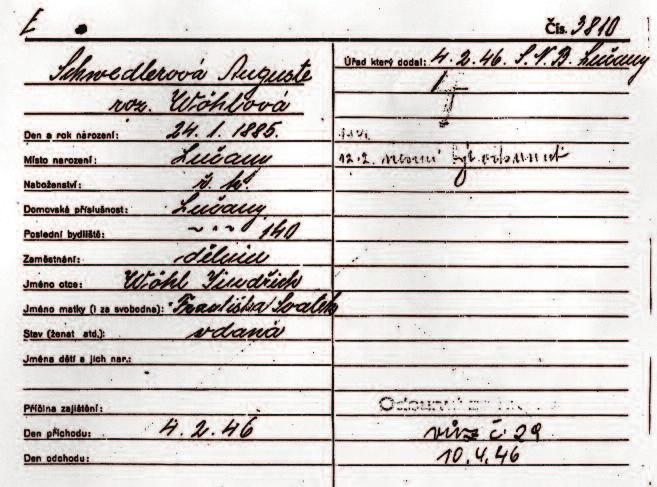 E
Čís. 3810
Schwedlerová Auguste
roz. Wöhlová
Den a rok národení: 24. 1. 1885.
Místo narození: Lučany
Naboženství: ř. k.
Domovská příslušnost: Lučany
Poslední bydliště: ~ " ~ 140
Zaměstnání: dělnice
Jméno otce: Wöhl Jindřich
Jméno matky (i za svobodna): Františka
Stav (ženat atd.): vdaná
Jména dětí a jich nar.:
Příčina zajištění:
Den příchodu: 4. 2. 46
Den odchodu:
Úřad který dodal: 4. 2. 46. S. N. B. Lučany
12.2. nesmí být
vůz č 29
10. 4. 46